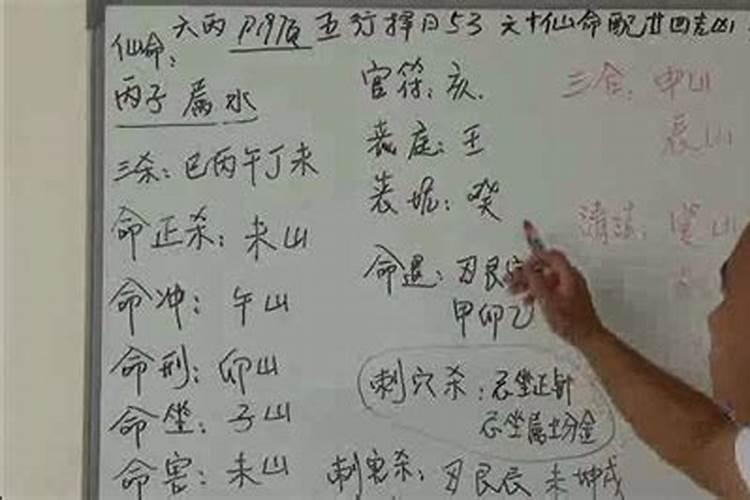 六丙 阴阳 五行择日53 六十仙命配廿四吉凶
仙命:
丙子 属水
三杀: 巳丙午丁未
命正杀: 未山
命冲: 午山
命刑: 卯山
命坐: 子山
命害: 未山
官符: 亥.
丧庭: 壬
丧地: 癸
命退: 丑艮
甲卯乙
刺穴杀: 忌坐正针
忌坐属土分金
刺害杀: 丑艮辰 未坤戌
三合: 申山
辰山